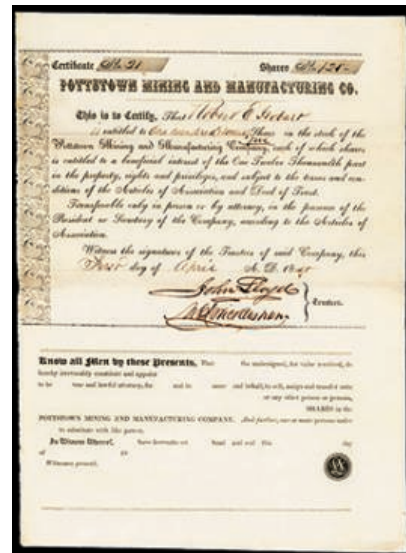 Certificate No 21 Shares No 125
POTTSTOWN MINING AND MANUFACTURING CO.
This is to Certify, That Robert E Hobart
is entitled to One hundred Shares in the stock of the
Pottstown Mining and Manufacturing Company, each of which shares
is entitled to a beneficial interest of the One Twelve Thousandth part
in the property, rights and privileges, and subject to the terms and con-
ditions of the Articles of Association and Deed of Trust.
Transferable only in person or by attorney, in the presence of the
President or Secretary of the Company, according to the Articles of
Association.
Witness the signatures of the Trustees of said Company, this
First day of April A. D. 18
John Lloyd
Trustees.
Know all Men by these Presents, That the undersigned, for value received, do
hereby irrevocably constitute and appoint
to be true and lawful attorney, for and in name and behalf, to sell, assign and transfer unto
or any other person or persons,
SHARES in the
POTTSTOWN MINING AND MANUFACTURING COMPANY. And further, one or more persons under
to substitute with like power.
In Witness Whereof, have hereunto set hand and seal this day
of 18
Witnesses present.